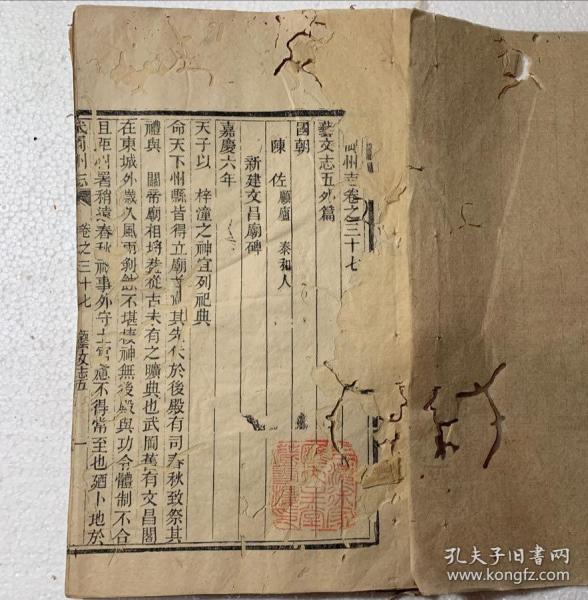 岡州志卷之三十七
藝文志五外篇
國朝
陳 佐 願廬 泰和人
新建文昌廟碑
嘉慶六年
天子以 梓潼之神宜列祀典
命天下州縣皆得立廟 其先代於後殿有司春秋致祭其
禮與 關帝廟相埒 從古未有之曠典也武岡舊有文昌閣
在東城外歲久風雨剝蝕不堪棲神無後殿與功令體制不合
且距州署稍遠春秋祀事外守土官 不得常至也廼卜地於
武岡州志 卷之三十七 藝文志五 一
孔夫子旧书网
www.kongfz.com